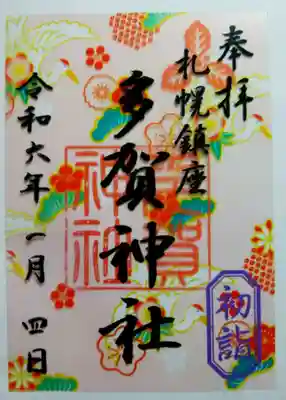 奉拝
札幌鎮座
多賀神社
令和六年 一月 四日
多賀神社
初詣